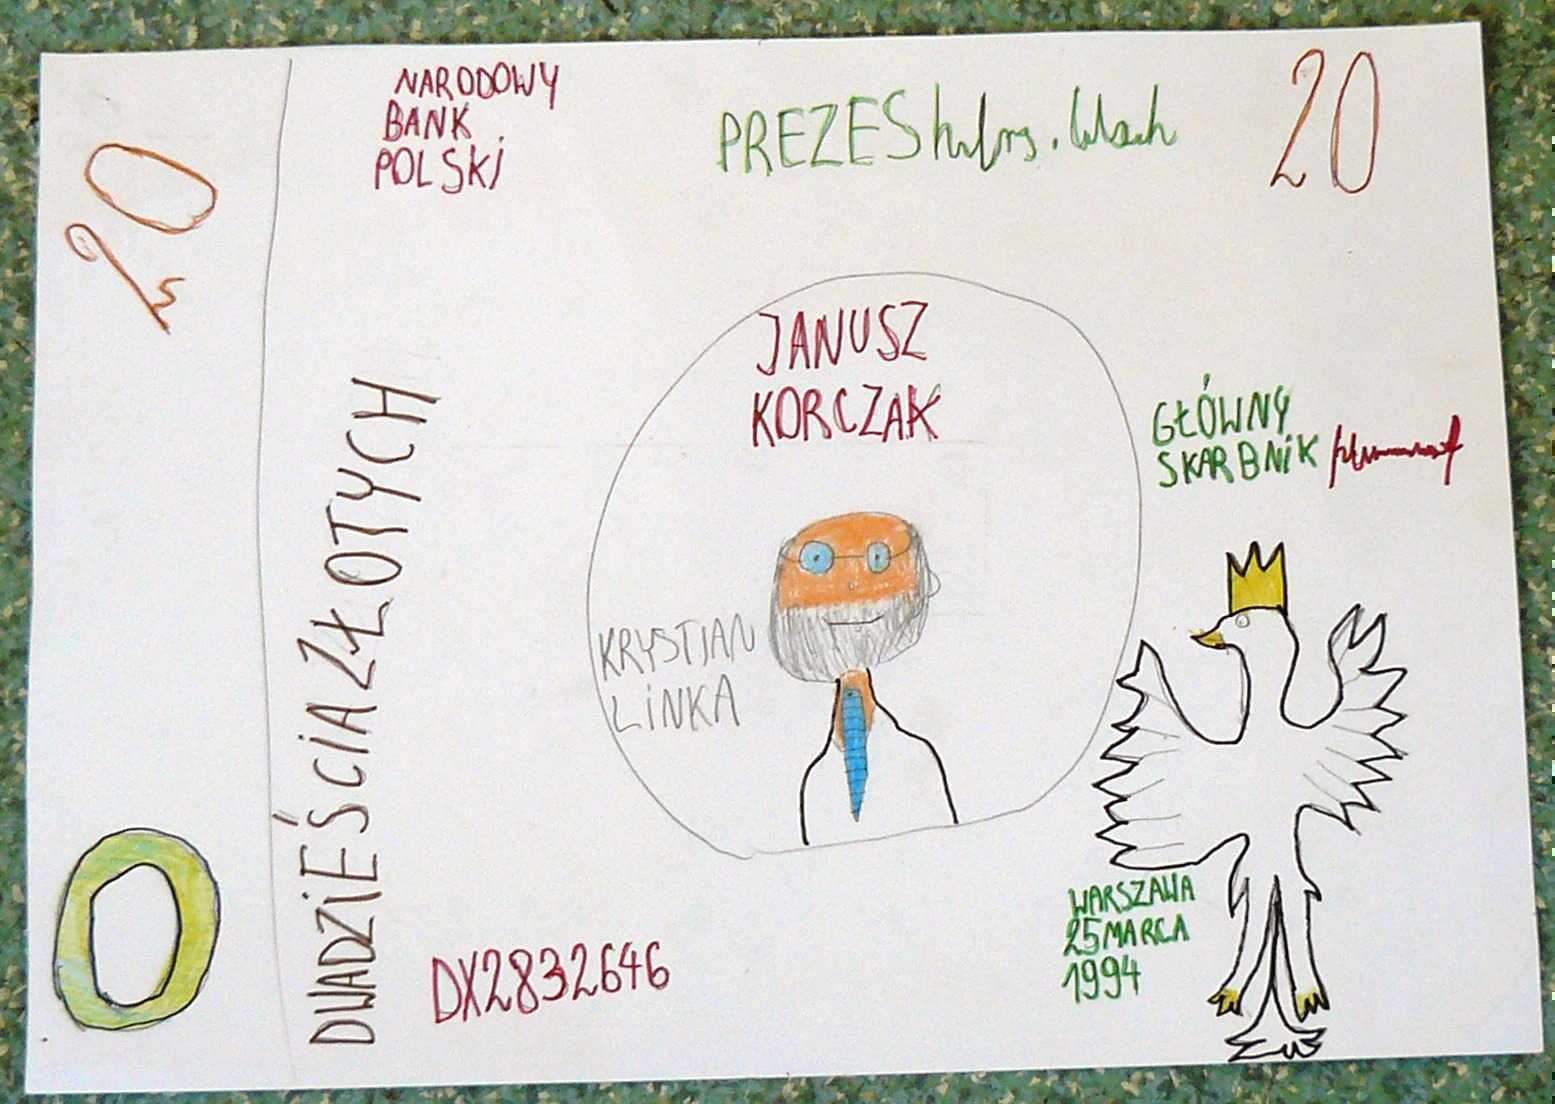 20
NARODOWY
BANK
POLSKI
PREZES
20
DWADZIEŚCIA ZŁOTYCH
JANUSZ
KORCZAK
KRYSTJAN
LINKA
GŁÓWNY
SKARBNIK
WARSZAWA
25 MARCA
1994
DX2832646